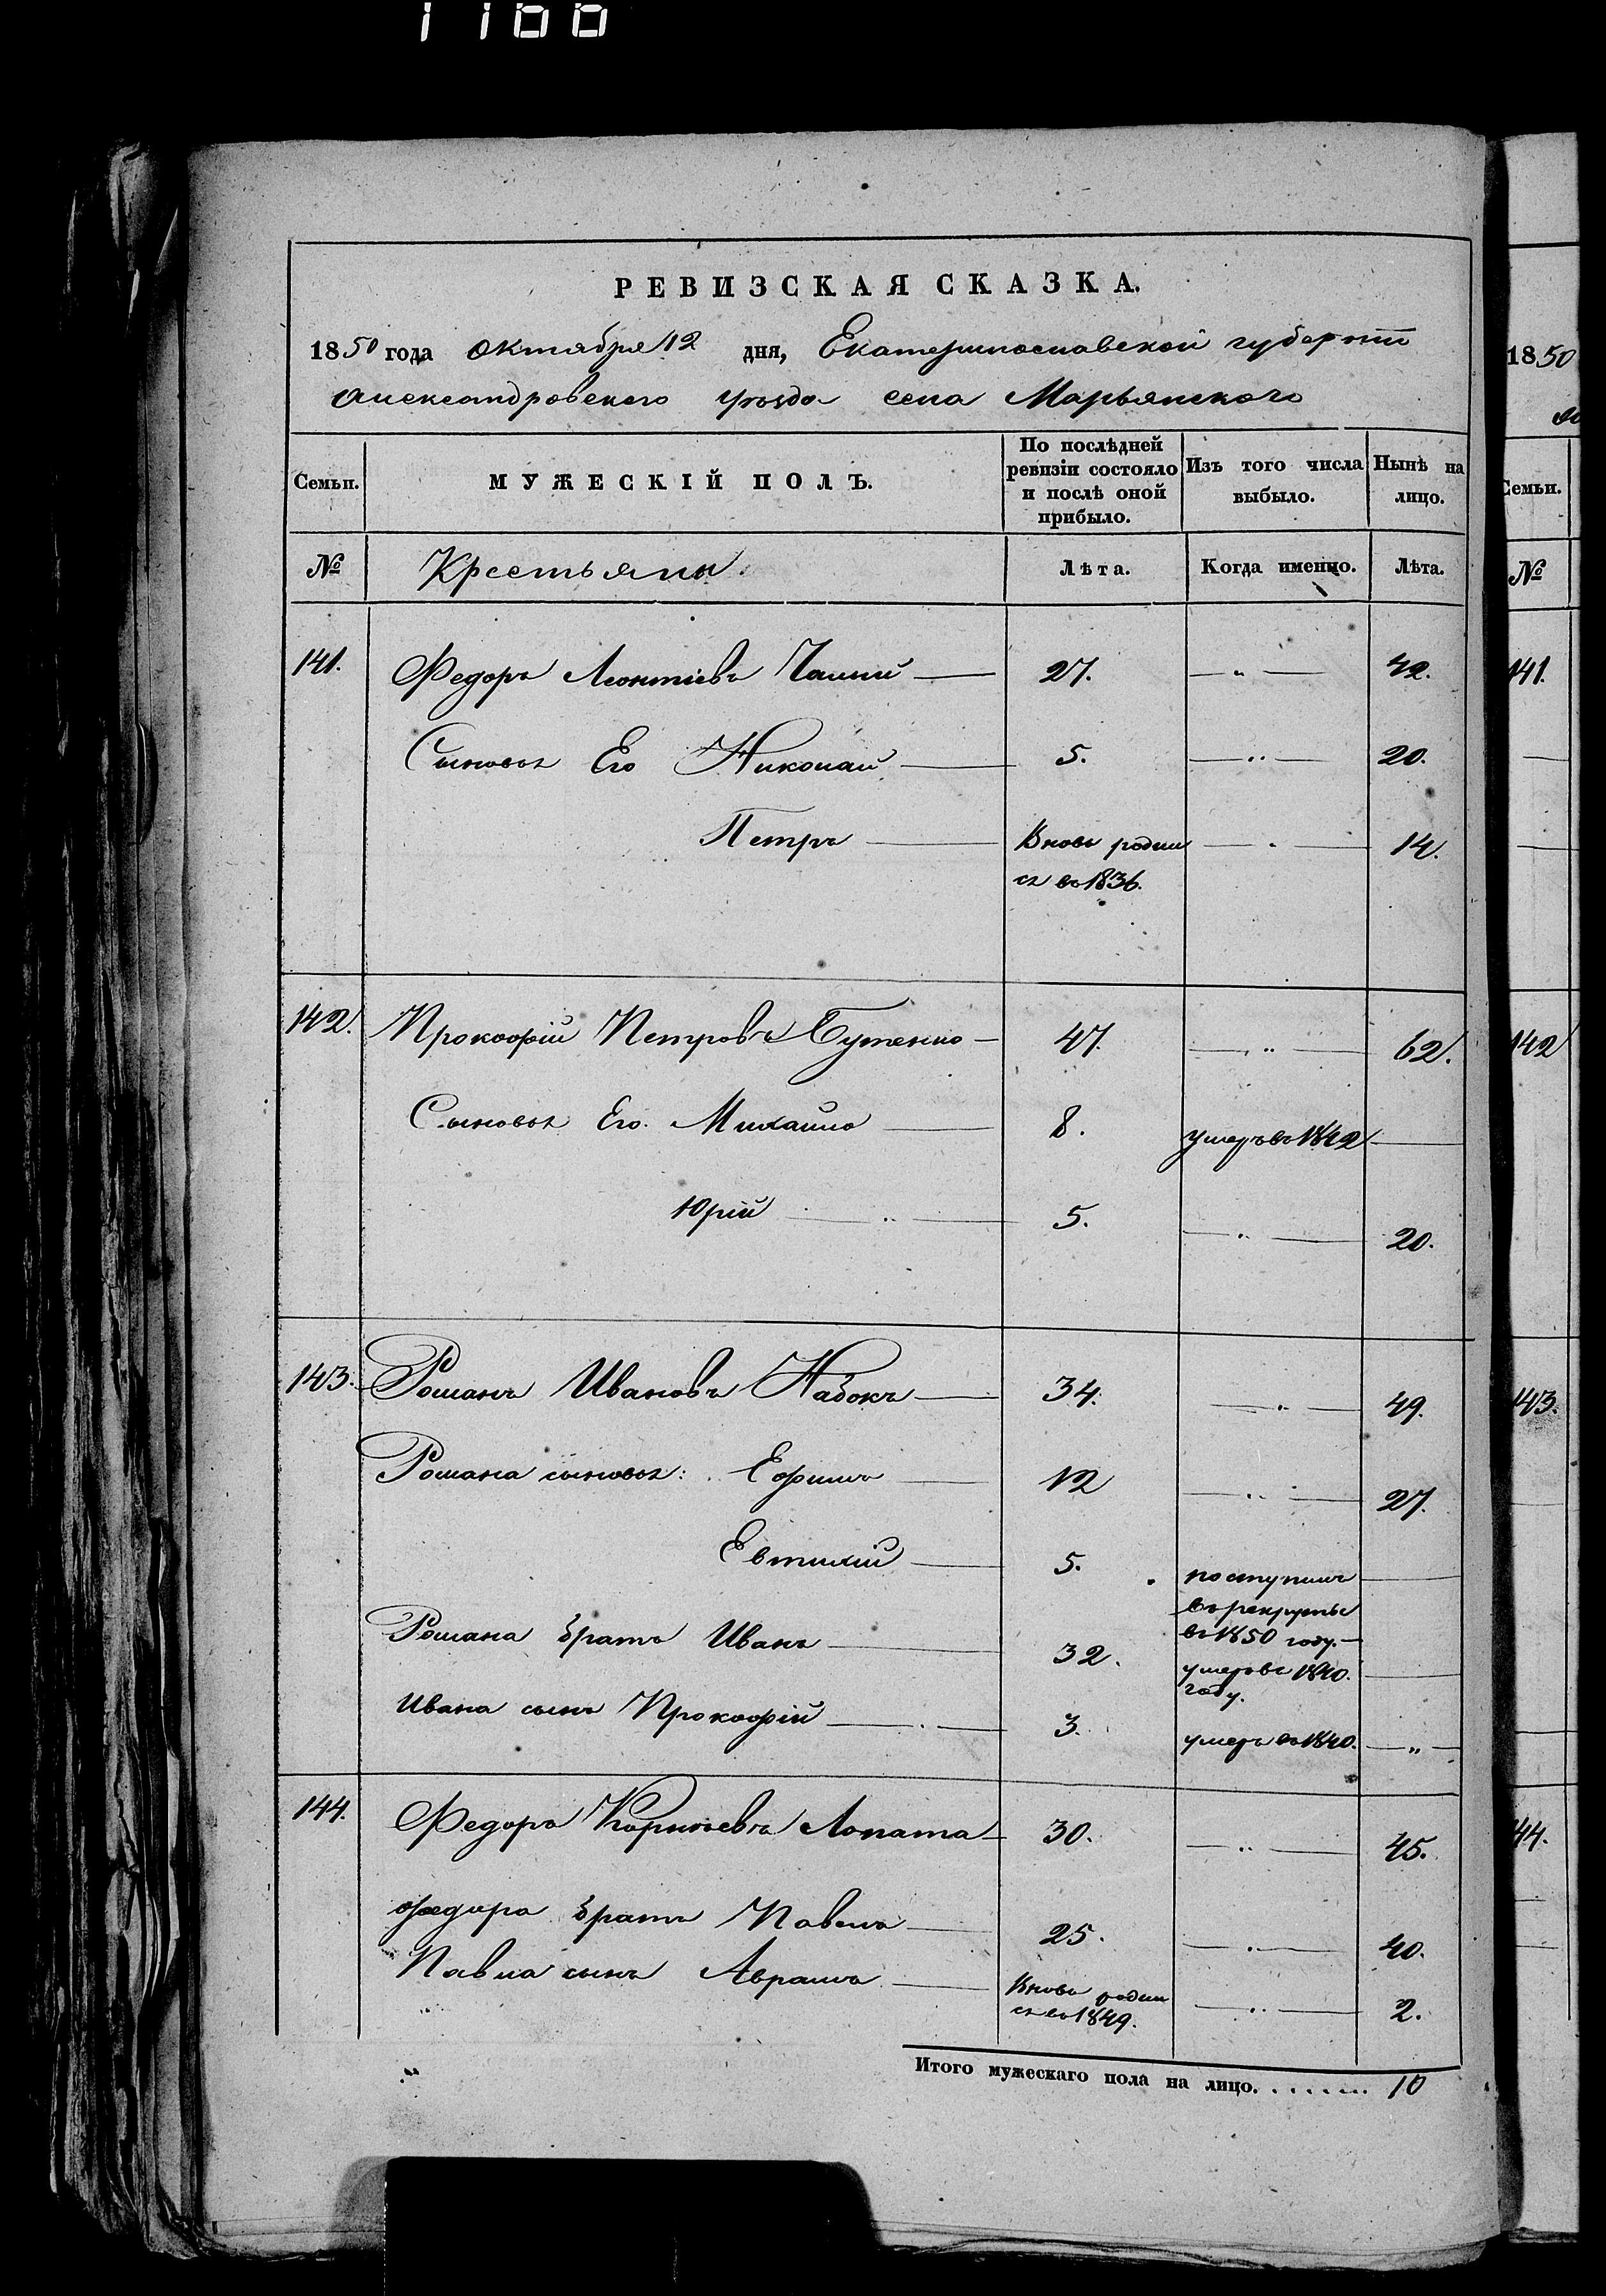 1100
РЕВИЗСКАЯ СКАЗКА.
1850 года Октября 12 дня, Екатеринославской губернии
Александровского уѣзда села Марьянского
Семьи.
МУЖЕСКІЙ ПОЛЪ.
По послѣдней ревизіи состояло и послѣ оной прибыло.
Изъ того числа выбыло.
Нынѣ на лицо.
№ Крестьяны Лѣта. Когда именно. Лѣта.
141. Федоръ Леонтіевъ Чалый — 27. — „ — 42.
Сыновья Его Николай — 5. — „ — 20.
Петръ — Вновь родил — „ — 14.
ся въ 1836.
142. Прокофій Петровъ Бутенко — 47. — „ — 62.
Сыновья Его Михайло — 8. умеръ въ 1842 —
Юрій — „ — 5. — „ — 20.
143. Романъ Ивановъ Набокъ — 34. — „ — 49.
Романа сыновья: Ефимъ — 12 — „ — 27.
Евтихій — 5. поступилъ —
въ рекруты
въ 1850 году. —
Романа братъ Иванъ — 32. умеръ въ 1840. —
году.
Ивана сынъ Прокофій — „ — 3. умеръ въ 1840. — „ —
144. Федоръ Корнѣевъ Лопата — 30. — „ — 45.
Федора братъ Павелъ — 25. — „ — 40.
Павла сынъ Аврамъ — Вновь родил — „ — 2.
ся въ 1849.
Итого мужескаго пола на лицо. . . . . . . 10
1850
Семьи.
№
141.
142
143.
44.